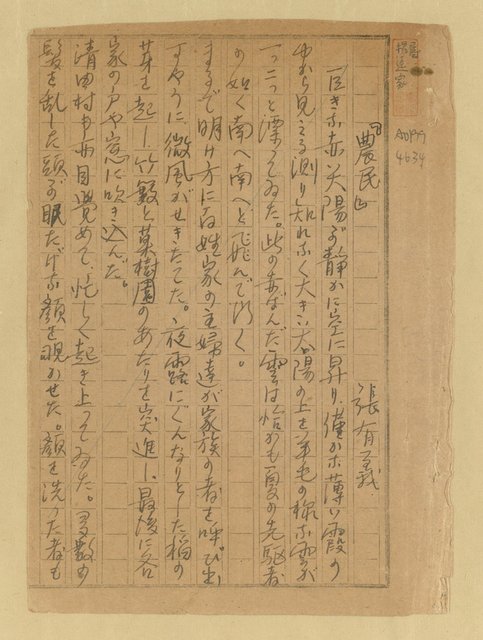 『農民』
張有義
巨きな赤い太陽が静かに空に昇り、僅かな薄い霞の
中から見える測り知れなく大きい太陽の上を羊毛の様な雲が
一つ二つと漂うてゐた。此の赤ばんだ雲は恰かも夏の先駆者
の如く南へ南へと飛んで行く。
まるで明け方に百姓家の主婦達が家族の者を呼び出
すやうに、微風がせきたてた。夜露にぐんなりとした稲の
芽を起し、竹籔と菓樹園のあたりを突進し、最後に各
家の戸や窓に吹き込んだ。
清田村も毎日覚めて、忙しく起き上ってゐた。多数の
髪を乱した頭が眠たげな顔を覗かせた。顔を洗った者も
楊逵家
A0199
4634